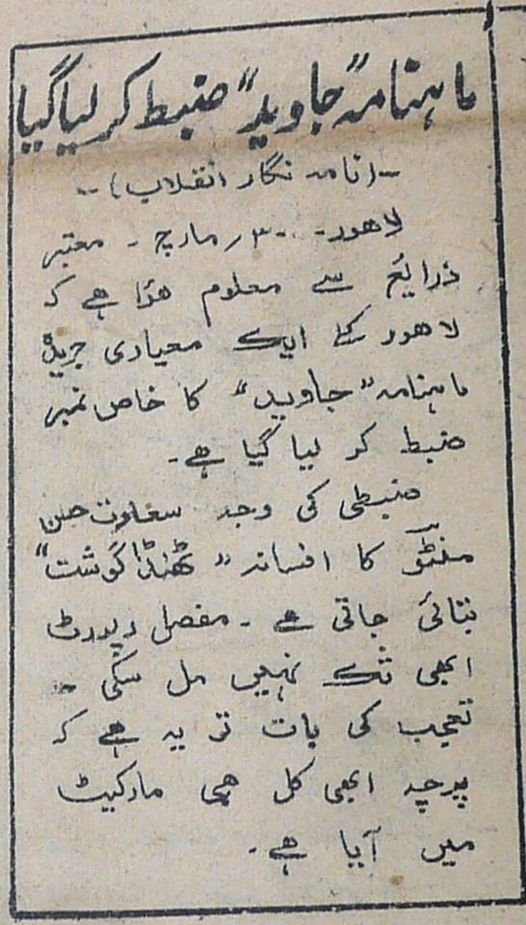 ماہنامہ "جاوید" ضبط کر لیا گیا
-(نامہ نگار انقلاب)-
لاھور۔ ۳۰؍ مارچ ۔ معتبر
ذرائع سے معلوم ھؤا ھے کہ
لاھور کے ایک معیاری جریدہ
ماہنامہ "جاوید" کا خاص نمبر
ضبط کر لیا گیا ھے۔
ضبطی کی وجہ سعادت حسن
منٹو کا افسانہ "ٹھنڈا گوشت"
بتائی جاتی ھے ۔ مفصل رپورٹ
ابھی تک نہیں مل سکی ۔
تعجب کی بات تو یہ ھے کہ
پرچہ ابھی کل ھی مارکیٹ
میں آیا ھے۔